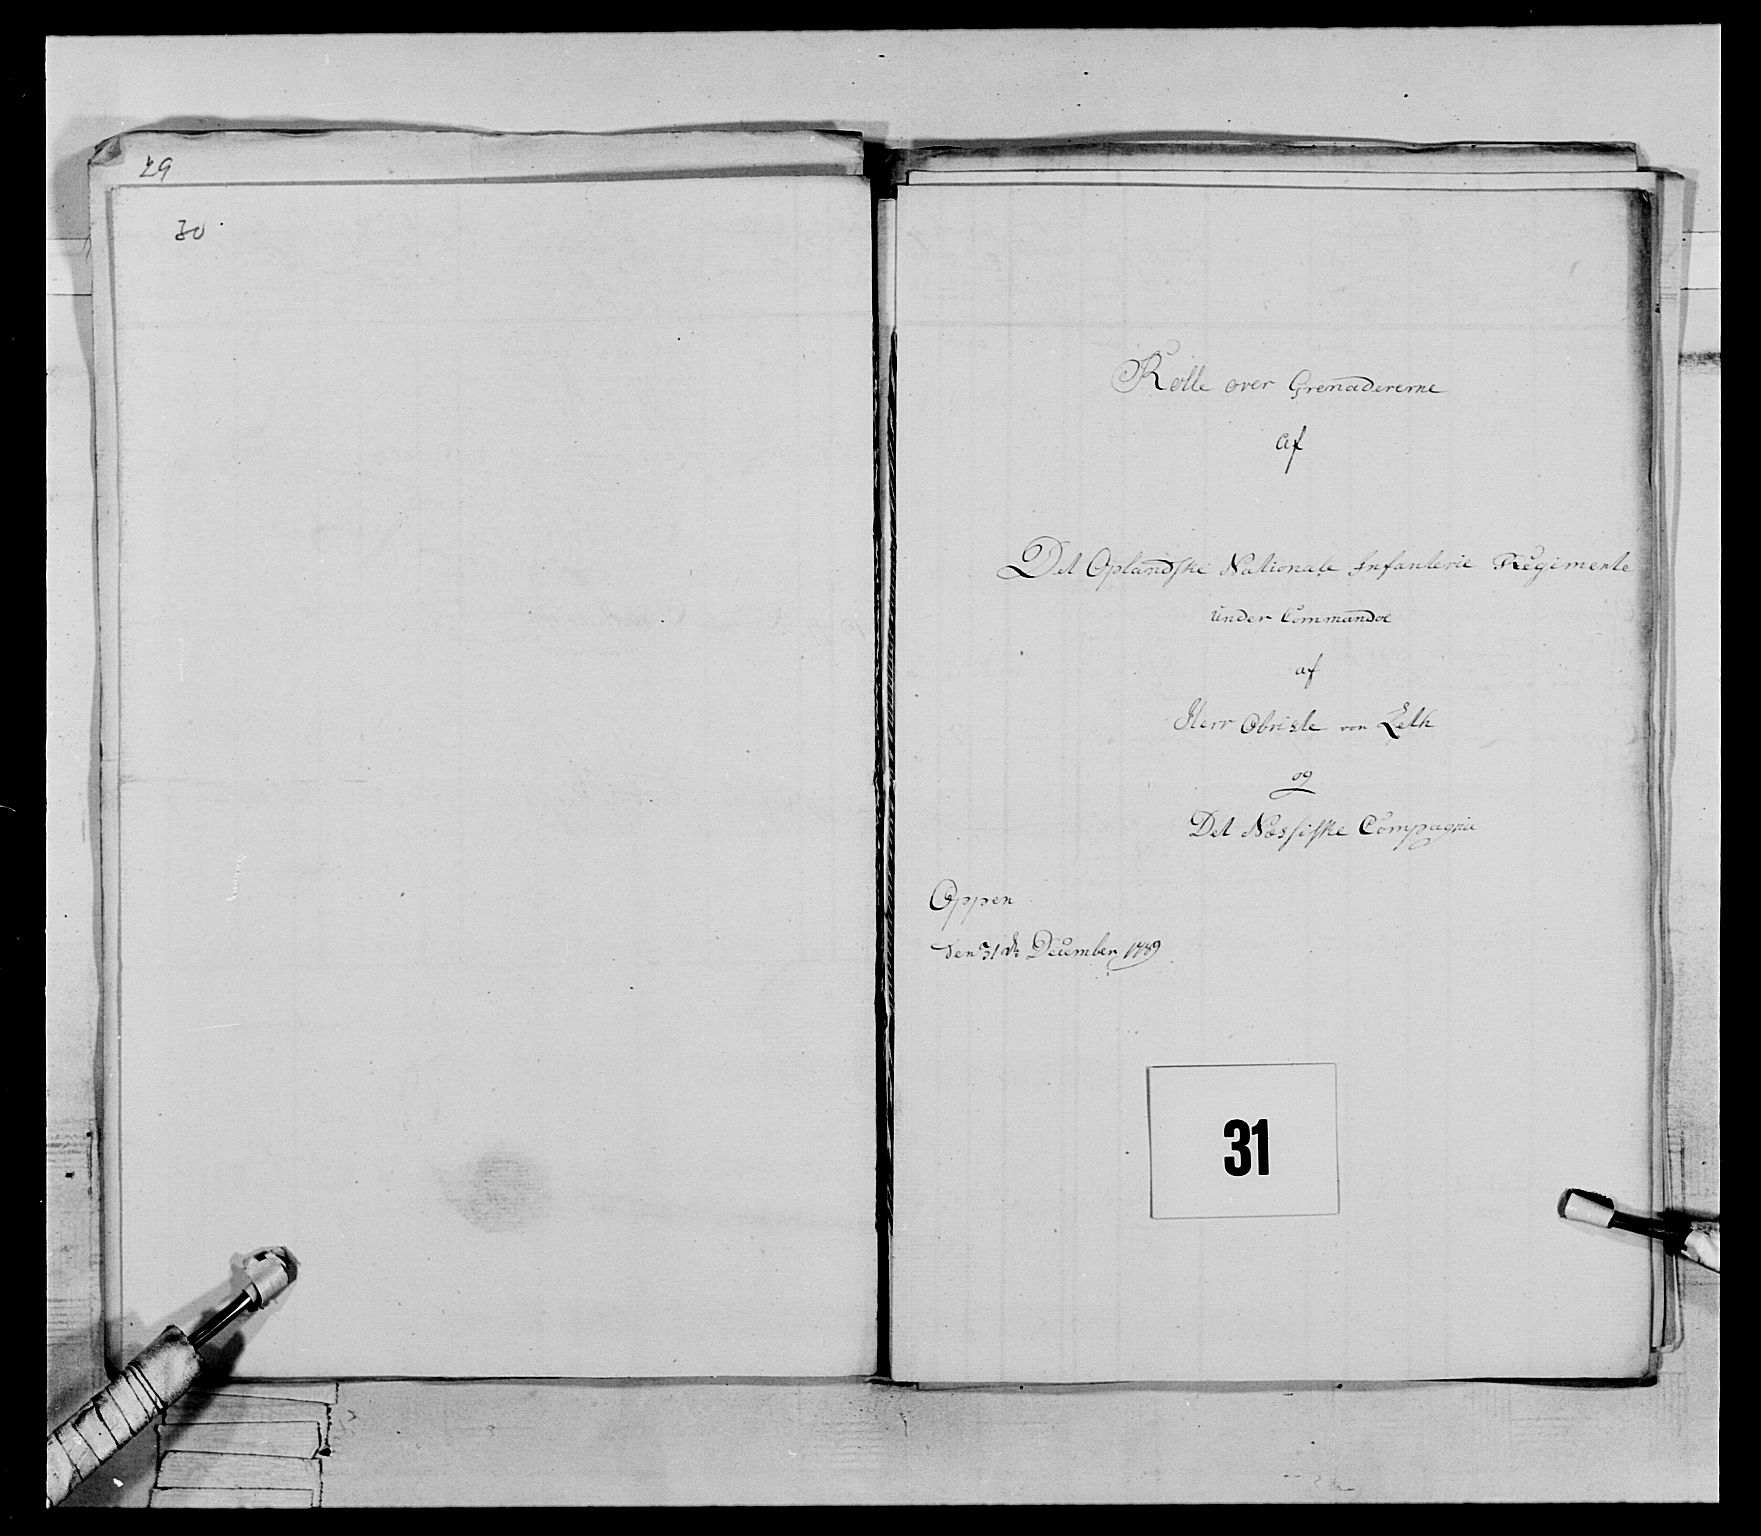 29
30
Rolle over Grenadererne
af
Det Oplandske Nationale Infanterie Regimente
under Commandoe
af
Herr Obriste von Zelh
og
Det Næssiske Compagnie
Oppen
den 31 de December 1789
31